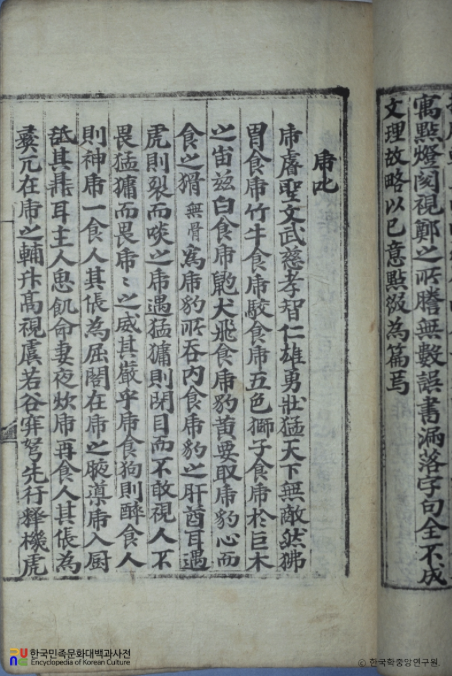 寓點燈閱視鄭之所謄無數誤書漏落字句全不成
文理故略以己意點綴為篇焉
乕叱
乕睿聖文武慈孝智仁雄勇壯猛天下無敵然狒
胃食乕竹牛食乕駮食乕五色獅子食乕於巨木
之岫玆白食乕䶂犬飛食乕豹黃要取乕豹心而
食之猾無骨為乕豹所吞內食乕豹之肝酋耳遇
虎則裂而啖之乕遇猛㺎則閉目而不敢視人不
畏猛㺎而畏乕々之威其嚴乎乕食狗則醉食人
則神乕一食人其倀為屈閣在乕之腋導乕入厨
舐其鼎耳主人思飢命妻夜炊乕再食人其倀為
彛兀在乕之輔升高視虞若谷穽弩先行釋機虎
한국민족문화대백과사전
Encyclopedia of Korean Culture
ⓒ 한국학중앙연구원